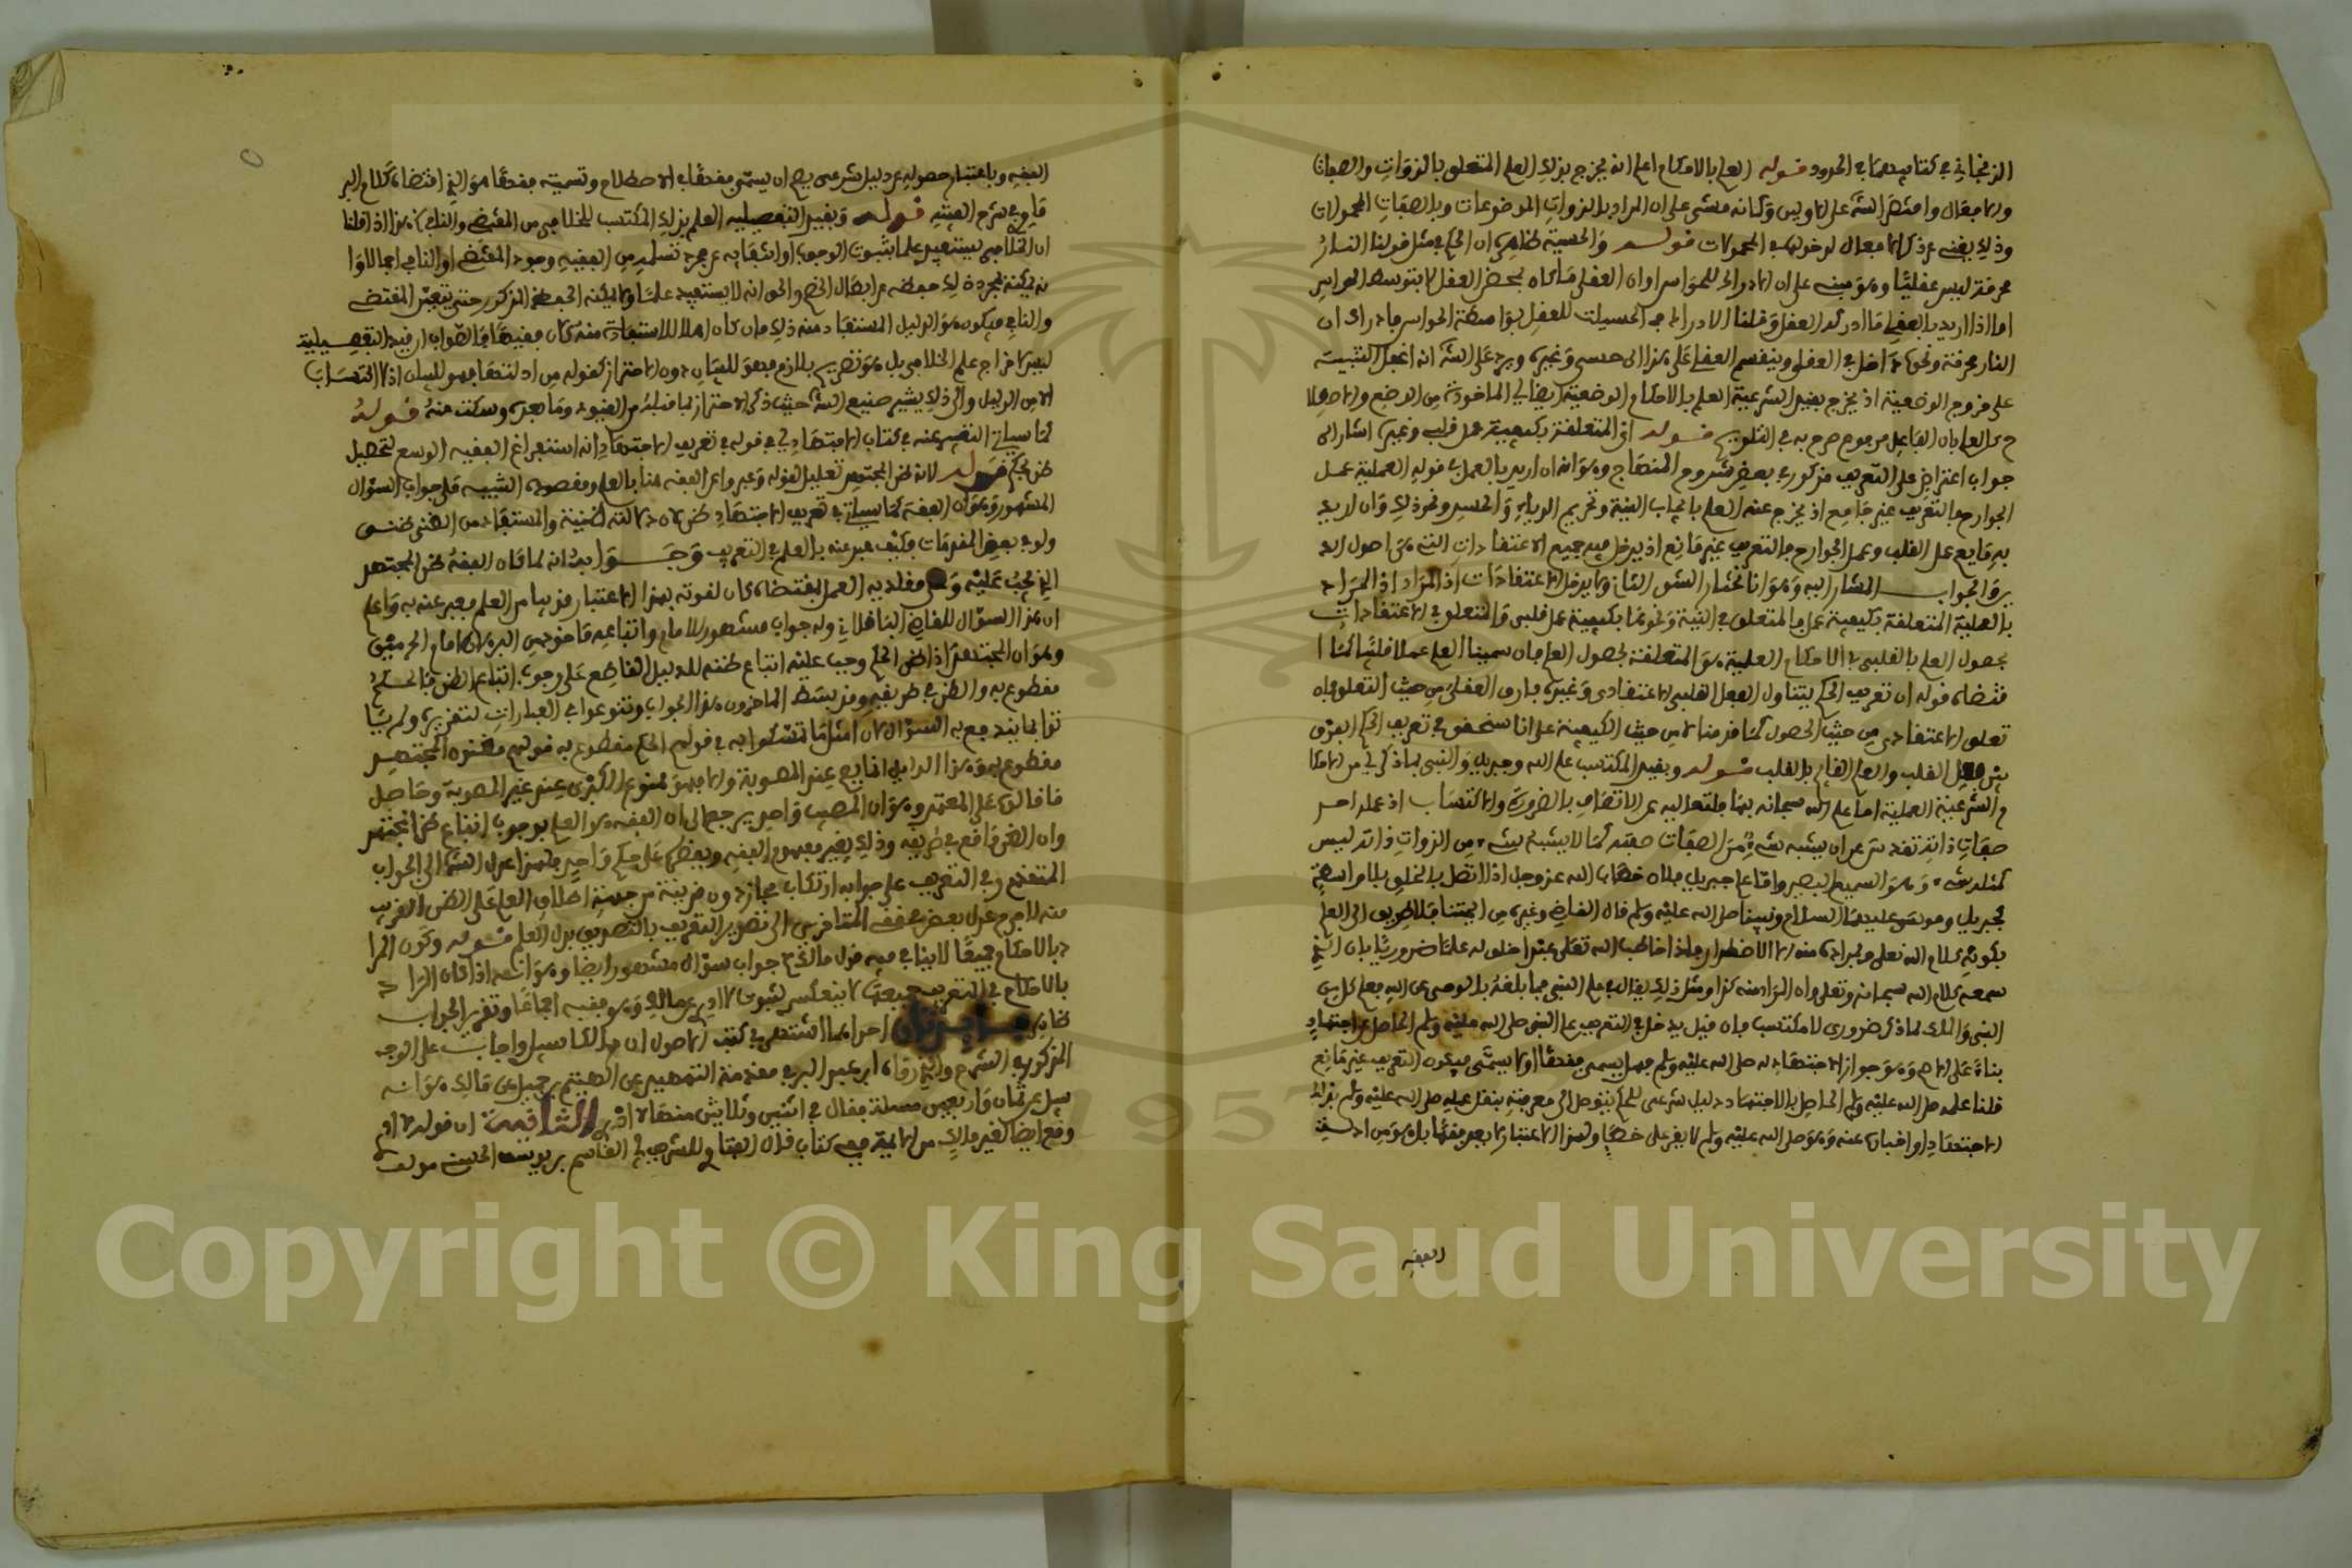 الزنجاني في كتابيهما في الحدود قوله العلم بالاحكام اعلم انه يخرج بذلك العلم المتعلق بالذوات والصفات
والافعال واقتصر الش على الاولين وكانه مشى على ان المراد بالذوات الموضوعات وبالصفات المحمولات
وذلك يغني عن ذكر الافعال لدخولها في المحمولات قوله والحسية ظاهره ان الحكم في مثل قولنا النار
محرقة ليس عقليا وهو مبني على ان الادراك للحواس او ان العقلي ما كان بمحض العقل لا بتوسط الحواس
اما اذا اريد بالعقلي ما ادركه العقل وقلنا الادراك في الحسيات للعقل بواسطة الحواس فادراك ان
النار محرقة ونحوه داخل في العقلي وينقسم العقلي على هذا الى حسي وغيره ويرد على الش انه اغفل التنبيه
على خروج الوضعية اذ يخرج بقيد الشرعية العلم بالاحكام الوضعية ايضا اي الماخوذة من الوضع والاصطلا
ح كالعلم بان الفاعل مرفوع صرح به في التلويح قوله اي المتعلقة بكيفية عمل قلبي وغيره اشار الى
جواب اعتراض على التعريف مذكور في بعض شروح المنهاج وهو انه ان اريد بالعمل في قوله العملية عمل
الجوارح فالتعريف غير جامع اذ يخرج عنه العلم بايجاب النية وتحريم الرياء والحسد ونحو ذلك وان اريد
به ما يعم عمل القلب وعمل الجوارح فالتعريف غير مانع اذ يدخل فيه جميع الاعتقادات التي هي اصول الد
ين والجواب المشار اليه وهو انا نختار الشق الثاني ولا يدخل الاعتقادات اذ المراد اذ المراد
بالعملية المتعلقة بكيفية عمل فالمتعلق في النية ونحوها بكيفية عمل قلبي والمتعلق في الاعتقادات
بحصول العلم بالقلب في الاحكام العلمية هو المتعلقة بحصول العلم فان سمينا العلم عملا قلبيا كما ا
قتضاه قوله ان تعريف الحكم يتناول الفعل القلبي الاعتقادي وغيره فارق العقلي من حيث التعلق فان
تعلق الاعتقادي من حيث الحصول كما قدمنا لا من حيث الكيفية على انا سنحقق في تعريف الحكم الفرق
بين فعل القلب والعلم القائم بالقلب قوله وبقيد المكتسب علم الله وجبريل والنبي بما ذكر اي من الاحكا
م الشرعية العملية اما علم الله سبحانه بها فلتعاليه عن الاتصاف بالضرورة والاكتساب اذ علمه احد
صفات ذاته تقدس عن ان يشبه شيء من الصفات صفته كما لا يشبه شيء من الذوات ذاته ليس
كمثله شيء وهو السميع البصير واما علم جبريل فلان خطاب الله عز وجل اذا اتصل بالخلق بلا واسطة
كجبريل وموسى عليهما السلام ونبينا صلى الله عليه وسلم قال القاضي وغيره من ائمتنا فلا طريق الى العلم
بكونه كلام الله تعالى وبمراده منه الا الاضطرار فاذا خاطب الله تعالى عبدا خلق له علما ضروريا بان الذي
سمعه كلام الله سبحانه وتعالى وان المراد منه كذا ومثل ذلك يقال في علم النبي فيما بلغه بالوحي عن الله فعلم كل من
النبي والملك لما ذكر ضروري لا مكتسب فان قيل يدخل في التعريف علم النبي صلى الله عليه وسلم الحاصل عن اجتهاد
بناء على الاصح وهو جواز الاجتهاد له صلى الله عليه وسلم فهل يسمى فقها او لا يسمى فيكون التعريف غير مانع
قلنا علمه صلى الله عليه وسلم الحاصل بالاجتهاد دليل شرعي للحكم يتوصل الى معرفته بنقل عمله صلى الله عليه وسلم بذلك
الاجتهاد او اخباره عنه وهو صلى الله عليه وسلم لا يقر على خطا ولهذا الاعتبار لا يعد فقها بل هو من ادلة
الفقه
الفقه وباعتبار حصوله عن دليل شرعي يصح ان يسمى فقها في الاصطلاح وتسميته فقها هو الذي اقتضاه كلام البر
ماوي في شرح الفيته قوله وبقيد التفصيلية العلم بذلك المكتسب للخلافي من المقتضي والنافي هذا اذا قلنا
ان الخلافي يستفيد علما بثبوت الوجوب او انتفائه عن مجرد تسلمه من الفقيه وجود المقتضي او النافي اجمالا وا
نه يمكنه بمجرد ذلك حفظه عن ابطال الخصم والحق انه لا يستفيد علما ولا يمكنه الحفظ المذكور حتى يتعين المقتضي
والنافي فيكون هو الدليل المستفاد منه ذلك فان كان اهلا للاستفادة منه كان فقيها فالصواب ان قيد التفصيلية
ليس لاخراج علم الخلافي بل هو تصريح باللازم فهو للبيان دون الاحتراز كقوله من ادلتها فهو للبيان اذ لا اكتساب
الا من الدليل والى ذلك يشير صنيع الش حيث ذكر الاحتراز لما قبله من القيود وما بعده وسكت عنه قوله
كما سياتي التعبير عنه في كتاب الاجتهاد اي في قوله في تعريف الاجتهاد انه استفراغ الفقيه الوسع لتحصيل
ظن بحكم قوله لانه ظن المجتهد تعليل لقوله وعبروا عن الفقه هنا بالعلم ومقصود الشيبه على جواب السؤال
المشهور وهو ان الفقه كما سياتي في تعريف الاجتهاد ظن لان دلالته ظنية والمستفاد من الظني ظني
ولو في بعض المقدمات فكيف عبر عنه بالعلم في التعريف وجوابه انه لما كان الفقه ظن المجتهد
الذي يجب عليه وعلى مقلديه العمل بمقتضاه كان لقوته بهذا الاعتبار قريبا من العلم فعبر عنه به واعلم
ان هذا السؤال للقاضي الباقلاني وله جواب مشهور للامام واتباعه ماخوذ من البرهان لامام الحرمين
وهو ان المجتهد اذا ظن الحكم وجب عليه اتباع ظنه للدليل القاطع على وجوب اتباع الظن فالحكم
مقطوع به والظن في طريقه وقد بسط الماخرون هذا الجواب وتنوعوا في العبارات لتقريره ولم يا
توا بما يندفع به السؤال لان امثل ما تمسكوا به في قولهم الحكم مقطوع به قولهم مظنون المجتهد
مقطوع به وهذا الدليل انما يتم عند المصوبة والا فهو ممنوع الكبرى عند غير المصوبة وحاصل
ما قالوه على المعتمد وهو ان المصيب واحد يرجع الى ان الفقه هو العلم بوجوب اتباع ظن المجتهد
وان الظن واقع في طريقه وذلك يغير مفهوم الفقه ويعكر على حكم واحد فلهذا عدل الش الى الجواب
المتقدم وفي التعريف على جوابه ارتكاب مجاز دون قرينة من جهة اطلاق العلم على الظن القريب
منه لا جرم عدل بعض محققي المتاخرين الى تصوير التعريف بالتصديق بدل العلم قوله وكون المرا
د بالاحكام جميعا لا ينافي فيه قول مالك الخ جواب سؤال مشهور ايضا وهو انه اذا كان المراد
بالاحكام في التعريف جميعها لا ينعكس لثبوت لا ادري عن مالك وهو فقيه اجماعا وتقرير الجواب
ظاهر احداهما اشتهر في كتب الاصول ان مالكا سئل واجاب على الوجه
المذكور في الشرح والذي رواه ابن عبد البر في مقدمة التمهيد عن الهيثم بن جميل عن مالك هو انه
سئل عن ثمان واربعين مسئلة فقال في اثنين وثلاثين منها لا ادري الثانية ان قوله لا ادري
وقع ايضا لغير مالك من الايمة ففي كتاب قال الملتقط للشريف ابي القاسم بن يوسف الحسني مولف
Copyright © King Saud University
1957